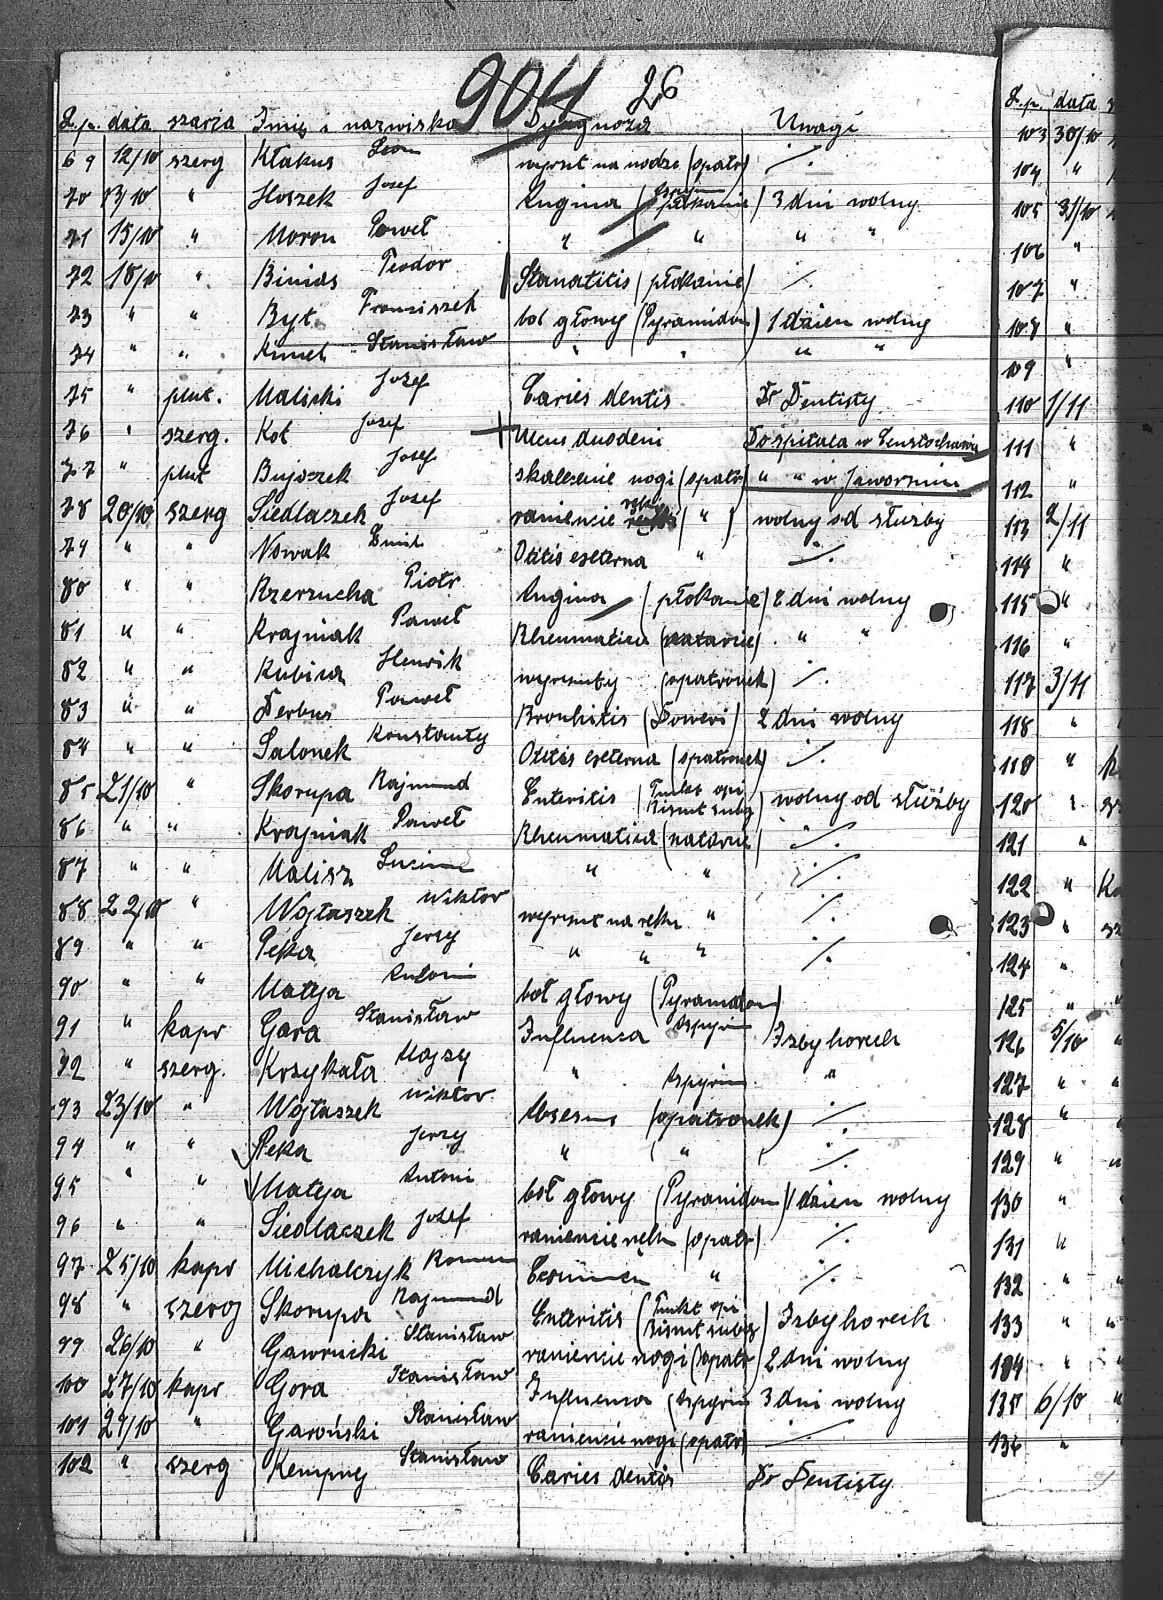 904 26
L.p. data szarja Imię i nazwisko Dyagnoza Uwagi
69 12/10 szerg Kłakus Leon wyrzut na nodze (opatr) ./.
70 13/10 " Hoszek Josef Angina (płokanie) 3 dni wolny
71 15/10 " Moron Paweł " " " "
72 18/10 " Binias Teodor Stomatitis (płokanie) ./.
73 " " Byt. Franciszek bol głowy (Pyramidon) 1 dzien wolny
74 " " Kimel Stanisław " " " "
75 " plut. Malicki Jozef Caries dentis Do Dentisty
76 " szerg. Kot Josef Ulcus duodeni Do szpitala w Censtochowie
77 " plut Bujoczek Josef skalecenie nogi (opatr) " " w Jaworzniu
78 20/10 szerg Siedlaczek Josef raniencie ręki ( " ) wolny od słuzby
79 " " Nowak Emil Otitis externa " ./.
80 " " Rzerzucha Piotr Angina (płokanie) 2 dni wolny
81 " " Krajniak Paweł Rheumatica (natarcie) " "
82 " " Kubica Henrik wyrzuty (opatronek) ./.
83 " " Derbus Paweł Bronhitis (Doweri) 2 dni wolny
84 " " Salonek Konstanty Otitis externa (opatronek) ./.
85 21/10 " Skorupa Rajmund Enteritis (Tinkt opi Bismt subg) wolny od słuzby
86 " " Krajniak Paweł Rheumatica (natarcie) ./.
87 " " Malisz " " ./.
88 22/10 " Wojtaszek Wiktor wyrzut na ręku " ./.
89 " " Pęka Jerzy " " " ./.
90 " " Matyja Antoni boł głowy (Pyramidon)
91 " kapr Gora Stanisław Influenca Aspyrin Izby horech
92 " szerg. Krzykała Alojzy " Aspyrin "
93 23/10 " Wojtaszek Wiktor Absess (opatronek) ./.
94 " " Pęka Jerzy " " ./.
95 " " Matyja Antoni boł głowy (Pyramidon) 1 dzien wolny
96 " " Siedlaczek Jozef raniencie ręku (opatr) ./.
97 25/10 kapr Michalczyk Roman " ./.
98 " szerg Skorupa Rajmund Enteritis (Tinkt opi Bismt subg) Izby horech
99 26/10 " Gawrucki Stanisław raniencie nogi (opatr) 2 dni wolny
100 27/10 kapr Gora Stanisław Influenca (Aspyrin 3 dni wolny
101 29/10 " Garoński Stanisław raniencie nogi (opatr) ./.
102 " szerg Kempny Stanisław Caries dentis Do Dentisty
L.p. data
103 30/10
104 "
105 31/10
106 "
107 "
108 "
109 "
110 1/11
111 "
112 "
113 2/11
114 "
115 "
116 "
117 3/11
118 "
119 "
120 "
121 "
122 "
123 "
124 "
125 " "
126 5/10 "
127 " "
128 "
129 " "
130 "
131 "
132 "
133 " "
134 "
135 6/10 "
136 "